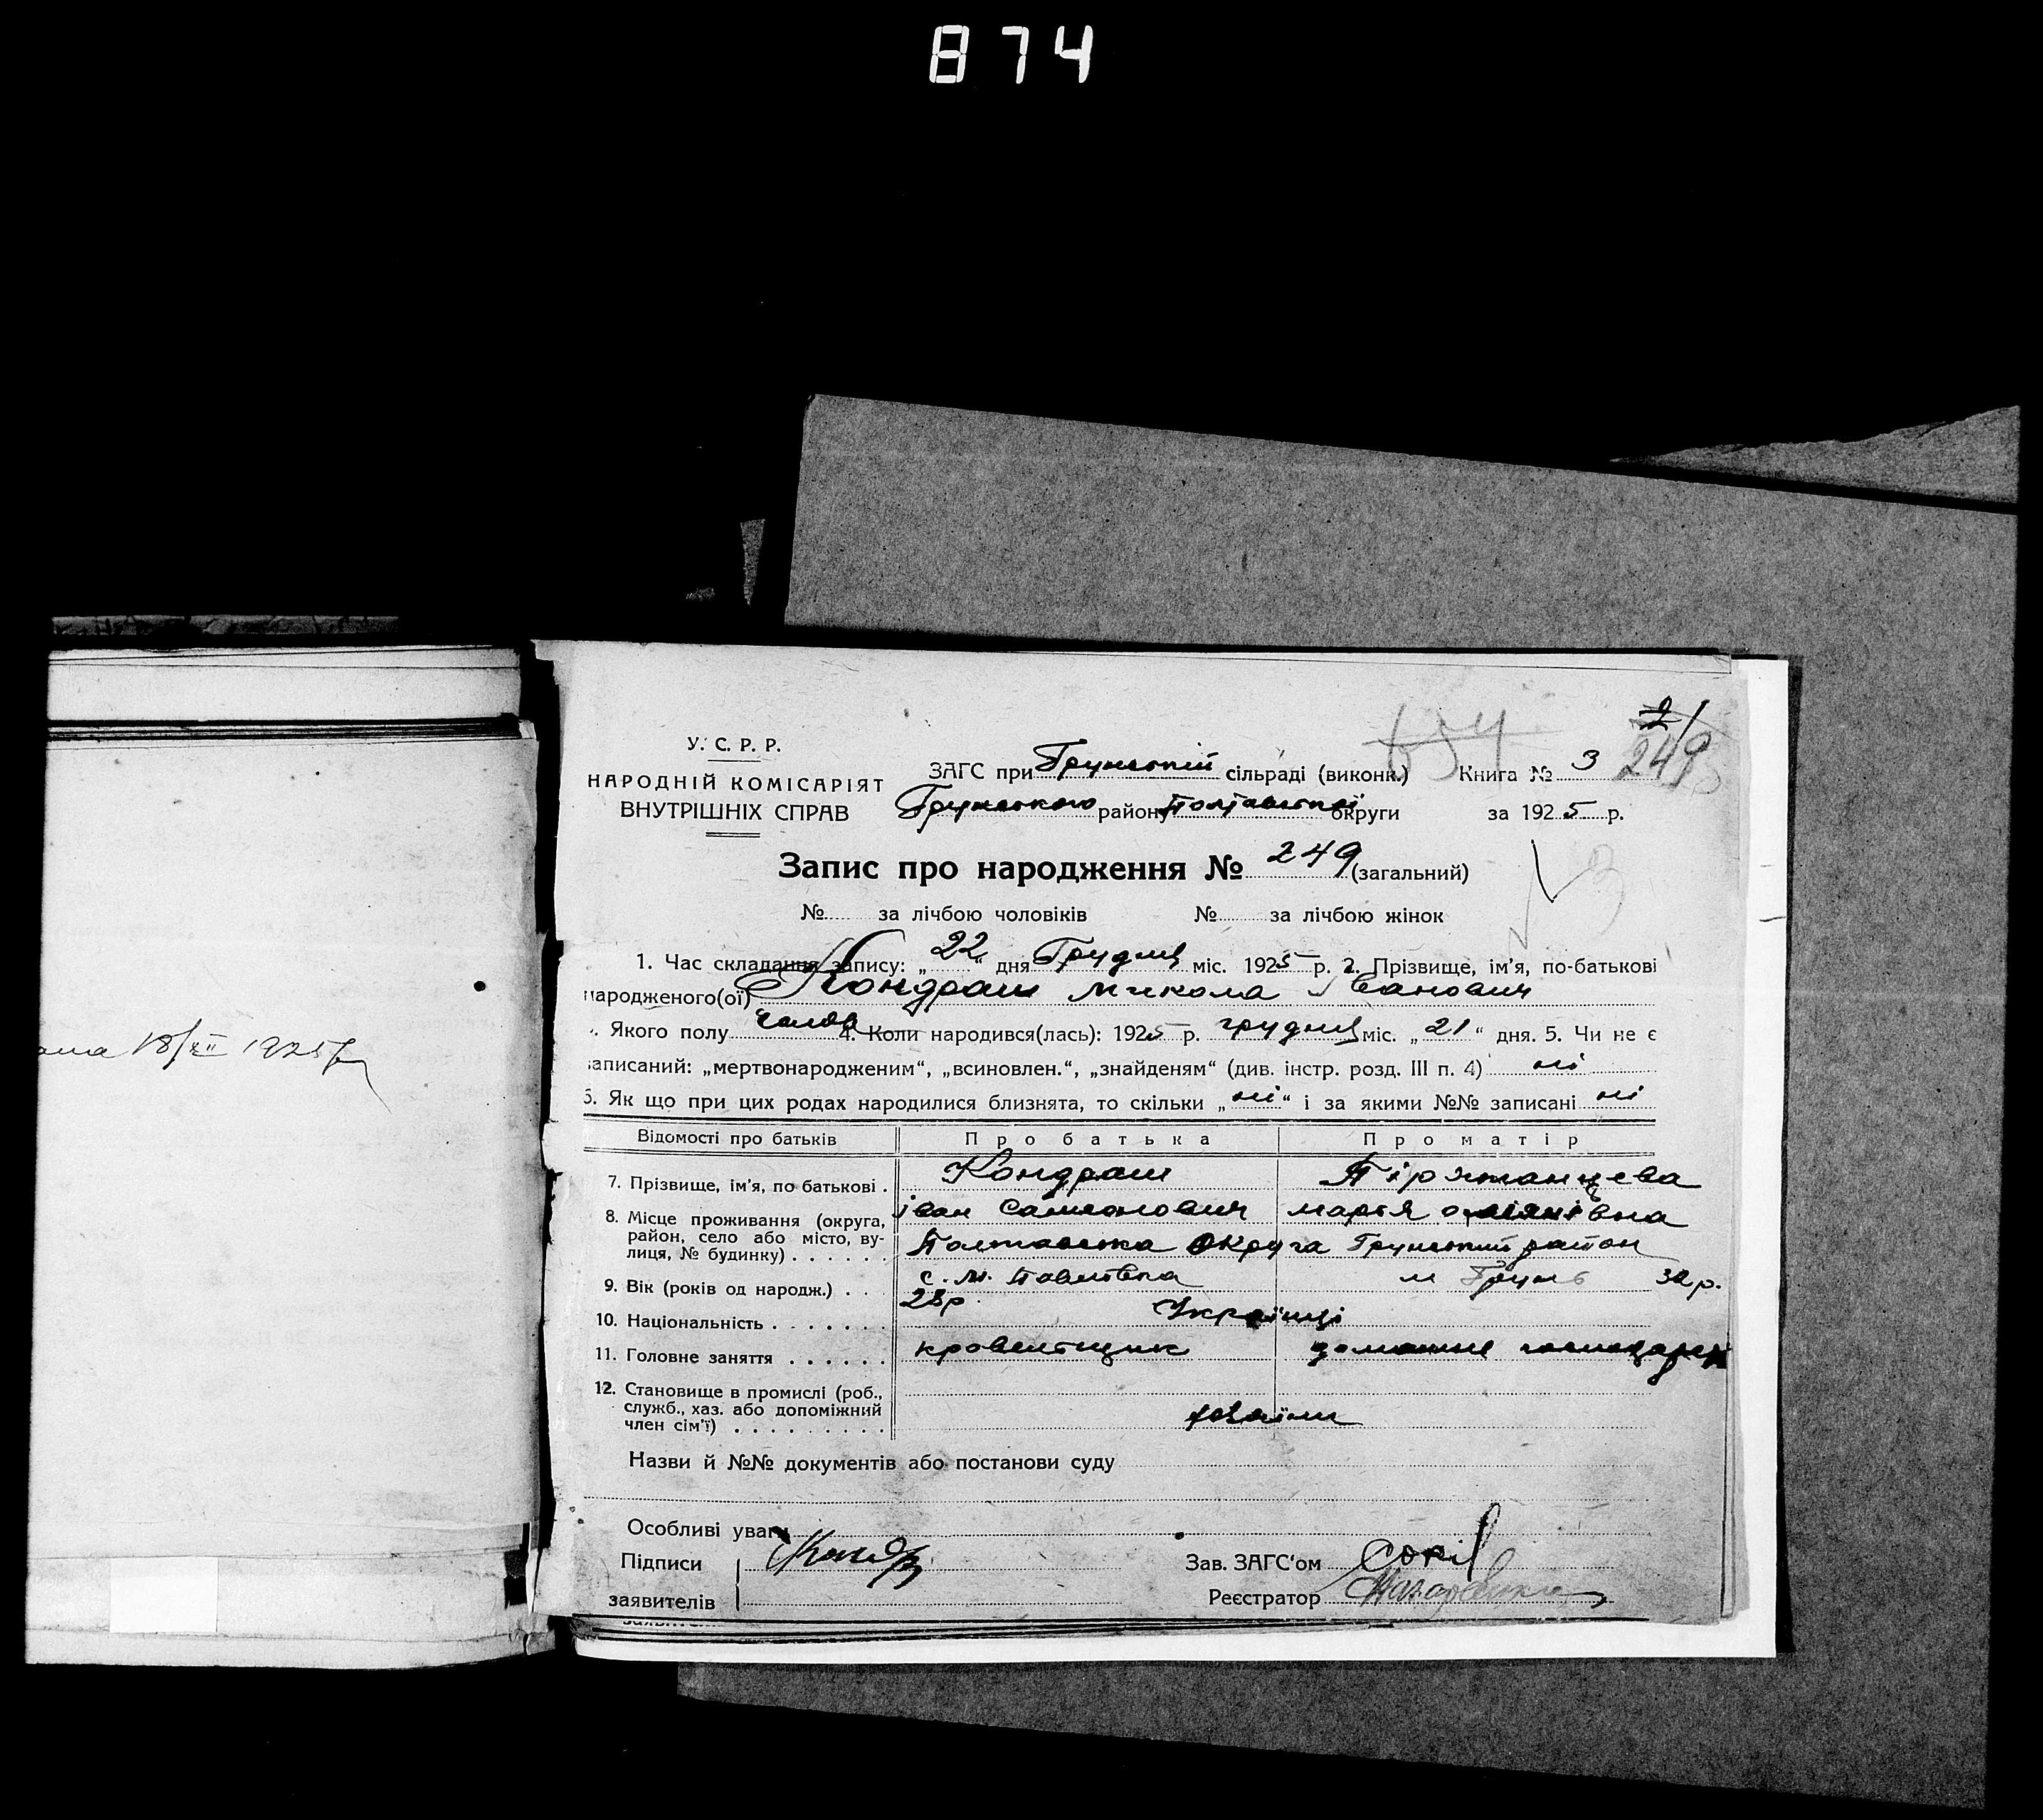 874
249
У. С. Р. Р.
НАРОДНІЙ КОМІСАРІЯТ
ВНУТРІШНІХ СПРАВ
ЗАГС при Грунській сільраді (виконк.) Книга № 3
Грунського району Полтавської округи за 1925 р.
Запис про народження № 249 (загальний)
№ за лічбою чоловіків № за лічбою жінок
1. Час складання запису: „22“ дня Грудня міс. 1925 р. 2. Прізвище, ім'я, по-батькові
народженого(ої) Кондраш Микола Іванович
. Якого полу 4. Коли народився(лась): 1925 р. грудня міс. „21“ дня. 5. Чи не є
записаний: „мертвонародженим“, „всиновлен.“, „знайденям“ (див. інстр. розд. III п. 4) ні
6. Як що при цих родах народилися близнята, то скільки „ні“ і за якими №№ записані ні
Відомості про батьків Про батька Про матір
7. Прізвище, ім'я, по батькові . Кондраш Пірятанцева
іван Самсонович марія
8. Місце проживання (округа, район, село або місто, вулиця, № будинку) . . . . . Полтавська Округа Грунський район
с. М. Павлівка м Грунь 32 р.
9. Вік (років од народж.) . . 28р
10. Національність . . . . . . . Українці
11. Головне заняття . . . . . . кровельщик домашнє
12. Становище в промислі (роб., служб., хаз. або допоміжний член сім'ї) . . . . . . . . .
Назви й №№ документів або постанови суду
Особливі уваги
Підписи
заявителів
Зав. ЗАГС'ом
Реєстратор
18/XII 1925р